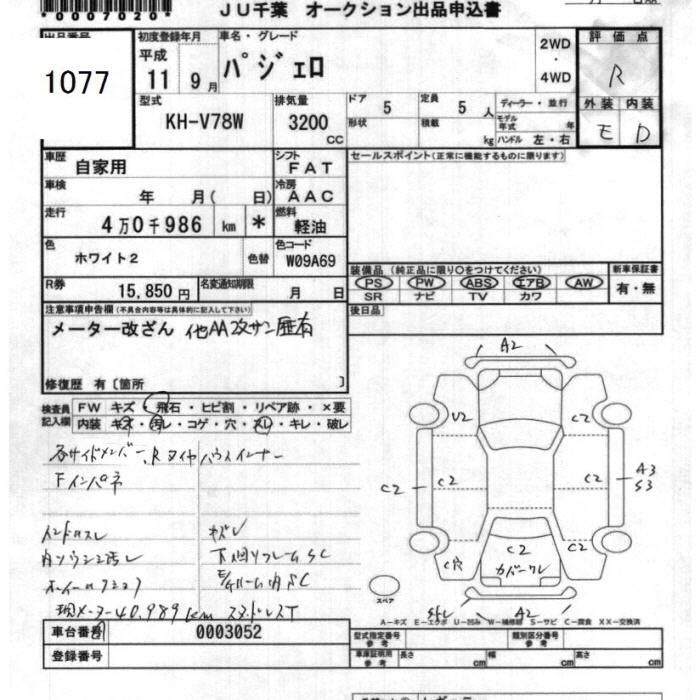 *0007020*
JU千葉 オークション出品申込書
出品番号 初度登録年月 車名・グレード 評価点
1077 平成 11 9月 パジェロ 2WD・4WD R
型式 排気量 ドア 5 定員 5人 ディーラー・並行 外装 内装
KH-V78W 3200cc 形状 積載 kg モデル年式 年 E D
ハンドル 左・右
車歴 自家用 シフト FAT セールスポイント(正常に機能するものに限ります)
車検 年 月( 日) 冷房 AAC
走行 4万0千986 km * 燃料 軽油
色 ホワイト2 色替 色コード W09A69
装備品(純正品に限り○をつけてください) 新車保証書
PS PW ABS エアB AW 有・無
SR ナビ TV カワ
R券 15,850円 名変通知期限 月 日
後日品
注意事項申告欄(不具合内容等は具体的に記入して下さい)
メーター改ざん 他AA改ザン歴有
修復歴 有〔箇所 〕
検査員記入欄 FW キズ・飛石・ヒビ割・リペア跡・×要
内装 キズ・汚レ・コゲ・穴・スレ・キレ・破レ
各サイドメンバー、Rタイヤハウスインナー
Fインパネ
ハンドルスレ キズレ
内ソウシミ汚レ 下回りフレームSC
現メーター40,989km スタッドレスT
A2
U2 C2
C2 C2 C2 A3 S3
C穴 C2 カバーワレ C2
スペア
A2
A－キズ E－エクボ U－凹み W－補修跡 S－サビ C－腐食 XX－交換済
車台番号 0003052
型式指定番号 参考 類別区分番号 参考
登録番号
車庫証明用 参考 長さ cm 幅 cm 高さ cm